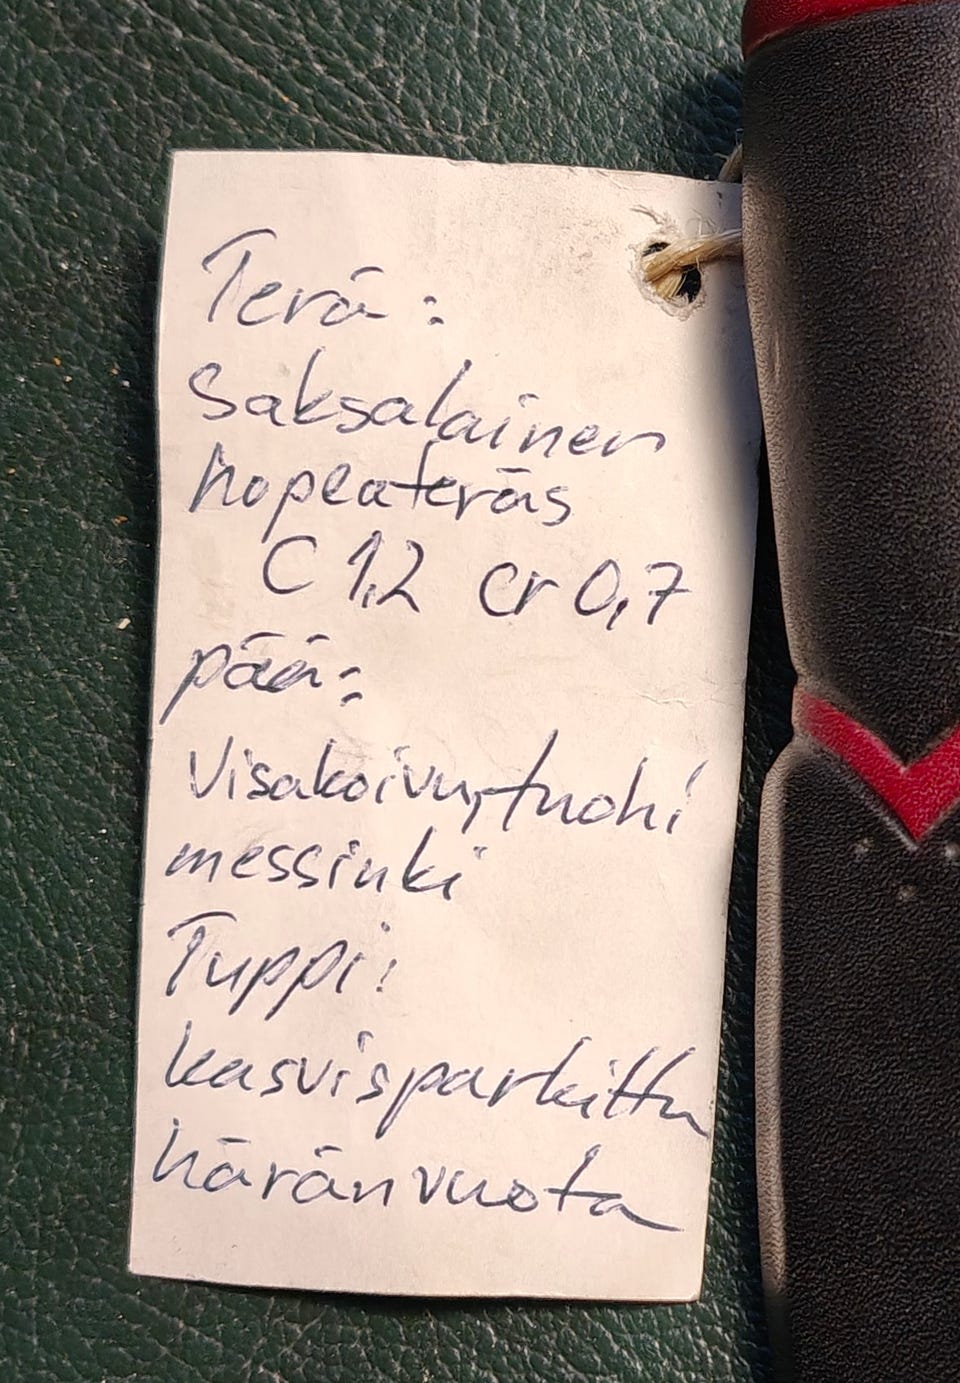 Terä:
Saksalainen
hopeateräs
C 1,2 cr 0,7
pää:
Visakoivu, tuohi
messinki
Tuppi:
kasvisparkittu
häränvuota